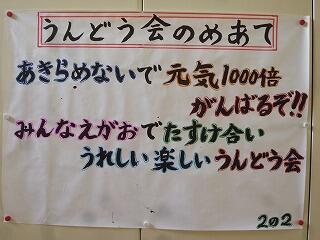 うんどう会のめあて
あきらめないで元気1000倍
がんばるぞ!!
みんなえがおでたすけ合い
うれしい楽しいうんどう会
2の2